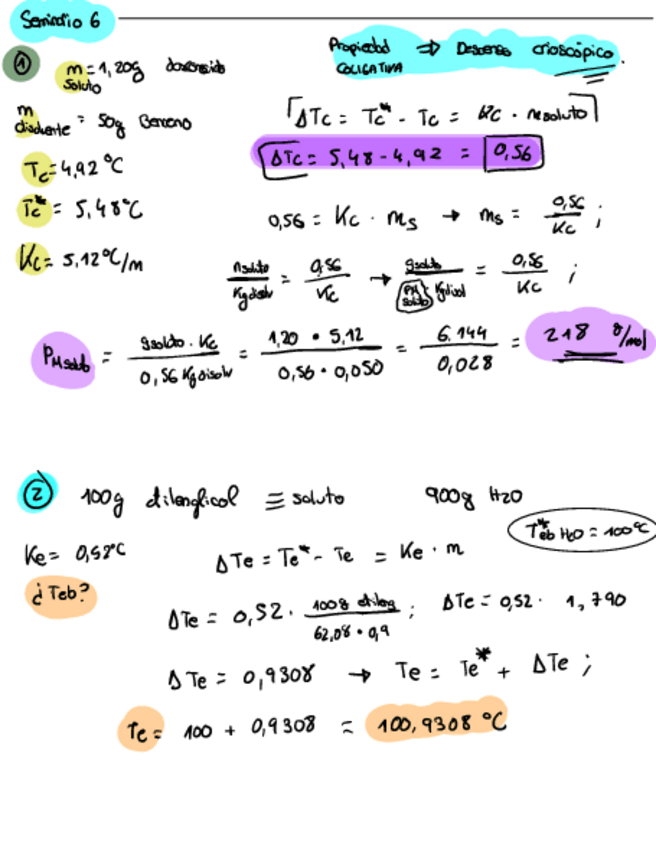 Seminario 6
① m soluto = 1,20g
Propiedad COLIGATIVA ⇒ Descenso crioscópico.
m disolvente = 50g Benceno
ΔTc = Tc* - Tc = Kc · msoluto
Tc = 4,92 ºC
ΔTc = 5,48 - 4,92 = 0,56
Tc* = 5,48ºC
0,56 = Kc · ms → ms = 0,56 / Kc ;
Kc = 5,12ºC/m
nsoluto / Kgdisolv = 0,56 / Kc → gsoluto / PM soluto Kgdisol = 0,56 / Kc ;
PMsoluto = gsoluto · Kc / 0,56 Kgdisolv = 1,20 · 5,12 / 0,56 · 0,050 = 6,144 / 0,028 = 218 g/mol
② 100g etilenglicol ≡ soluto 900g H2O
Teb* H2O = 100ºC
Ke = 0,52ºC
ΔTe = Te* - Te = Ke · m
¿Teb?
ΔTe = 0,52 · 100g etileng / 62,08 · 0,9 ; ΔTe = 0,52 · 1,790
ΔTe = 0,9308 → Te = Te* + ΔTe ;
Te = 100 + 0,9308 = 100,9308 ºC